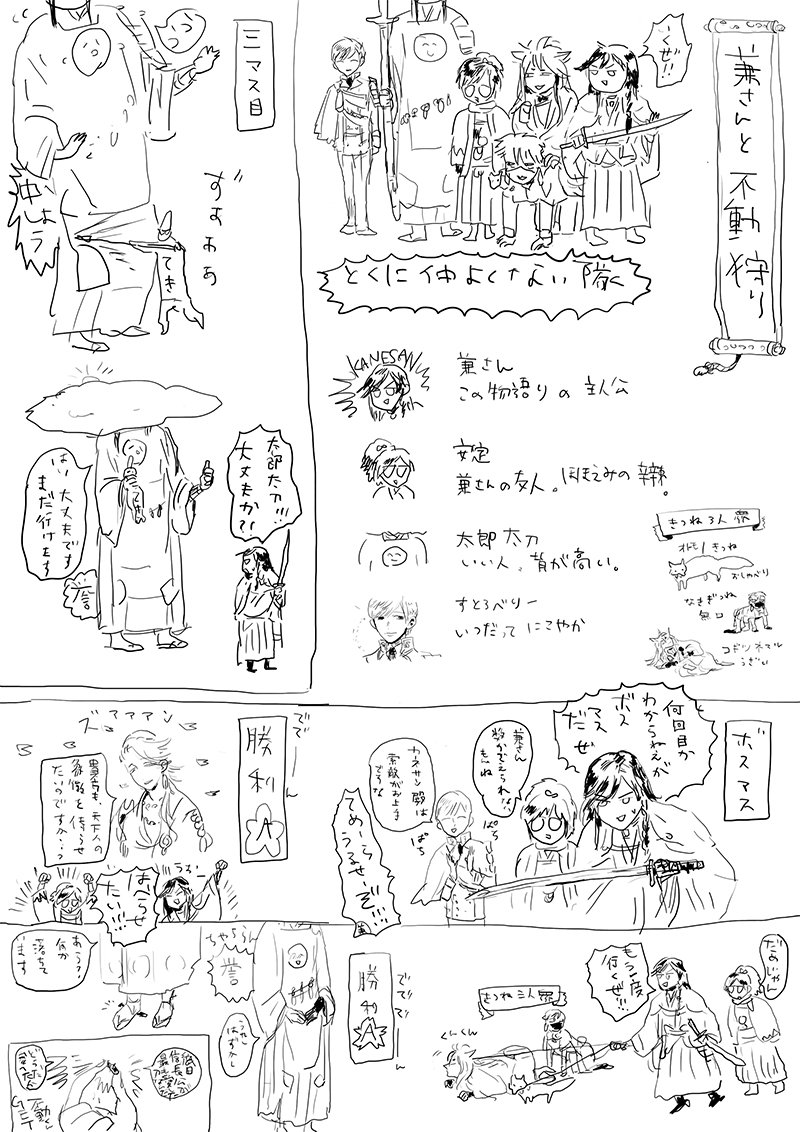 兼さんと不動狩り
いくぜ!!
とくに仲よくない隊
KANESAN
兼さん
この物語りの主人公
安定
兼さんの友人。ほほえみの辣。
太郎太刀
いい人。背が高い。
すとろべりー
いつだってにこやか
きつね3人衆
オトモノきつね
おしゃべり
なきぎつね
無口
コギツネマル
うざい
三マス目
ずおああ
てき
仲しよう
太郎太刀!!!
大丈夫か?!
はい大丈夫です
まだ行けます
誉
ボスマス
何回目か
わからねぇが
ボス
マス
だぜ
兼さん
ぱち
ぱち
てめーら
うるせーぞ!!!
ででーーん
勝利A
ズアアアン
貴方も、天下人の
象徴を侍らせ
たいのですか…?
うおー!!!
はべらせ
たい!!!
だめじゃん
もう一度
行くぜ!!!
きつね三人衆
くんくん
ででで
ーーん
勝利A
ちゃらら〜ん
誉
うれし
はずかし
あら?
何か
落ちて
ます
不動くん